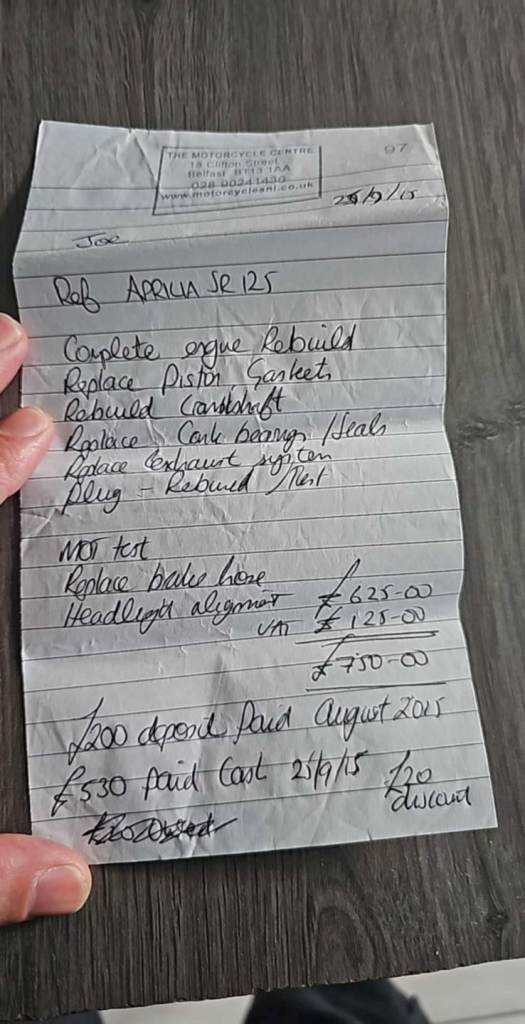 THE MOTORCYCLE CENTRE
18 Clifton Street
Belfast BT13 1AA
028 90241430
www.motorcycleni.co.uk
97
25/9/15
Joe
Ref APRILIA SR 125
Complete engue Rebuild
Replace Piston, Gaskets
Rebuild Crankshaft
Replace Crank bearings /Seals
Replace exhaust system
Plug - Rebuild /Test
MOT test
Replace brake hose
Headlight alignment £625-00
VAT £125-00
£750-00
£200 deposit Paid August 2015
£530 Paid Cash 25/9/15 £20
discount